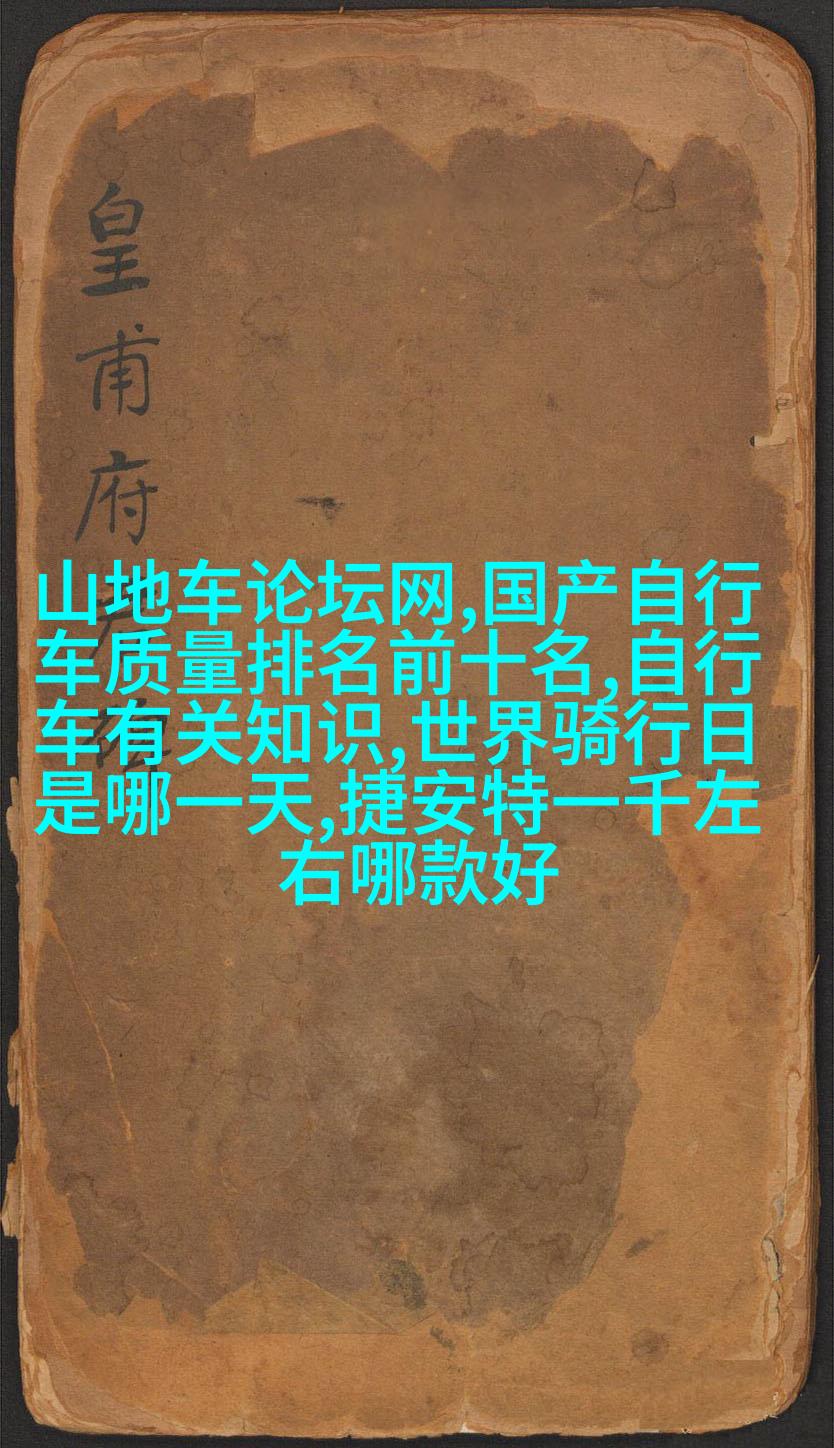 皇甫府君碑
山地车论坛网,国产自行
车质量排名前十名,自行
车有关知识,世界骑行日
是哪一天,捷安特一千左
右哪款好